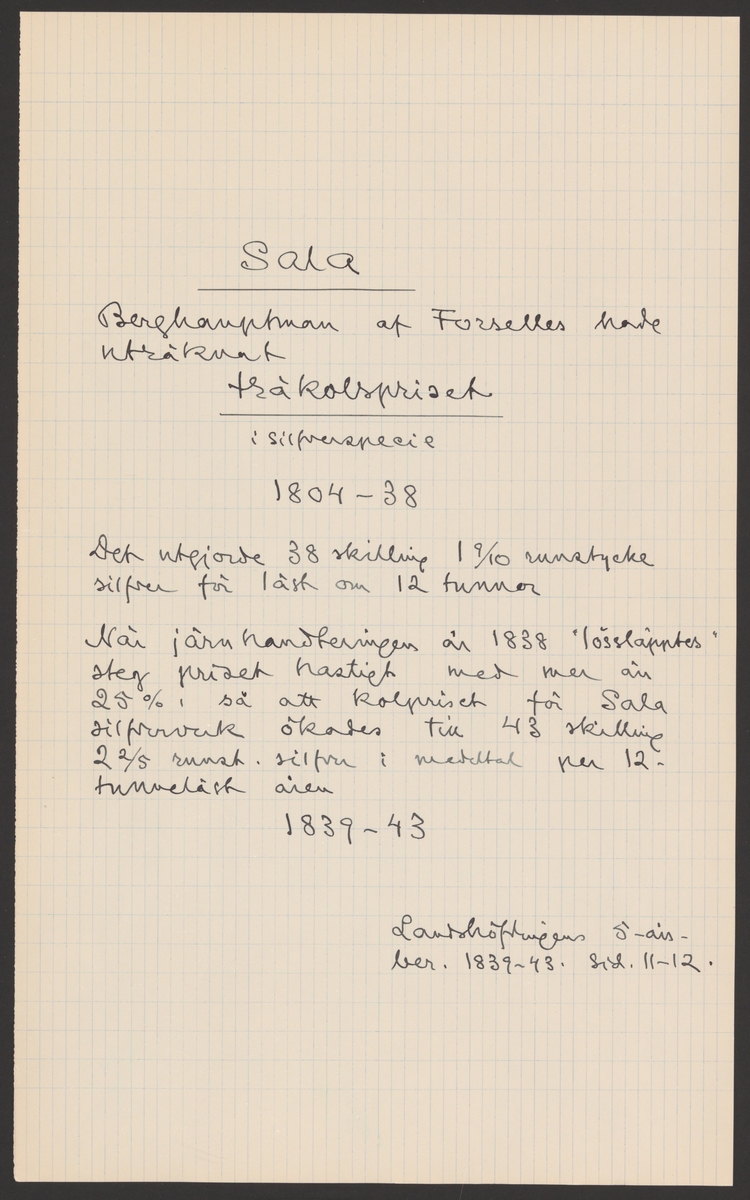 Sala
Berghauptman af Forselles hade
uträknat
träkolspriset
i silfverspecie
1804-38
Det utgjorde 38 skilling 1 9/10 runstycke
silfver för läst om 12 tunnor
När järnhandteringen år 1838 "lössläpptes"
steg priset hastigt med mer än
25%, så att kolpriset för Sala
silfververk ökades till 43 skilling
2 2/5 runst. silfver i medeltal per 12-
tunneläst åren
1839-43
Landshöfdingens 5-års-
ber. 1839-43. Sid. 11-12.